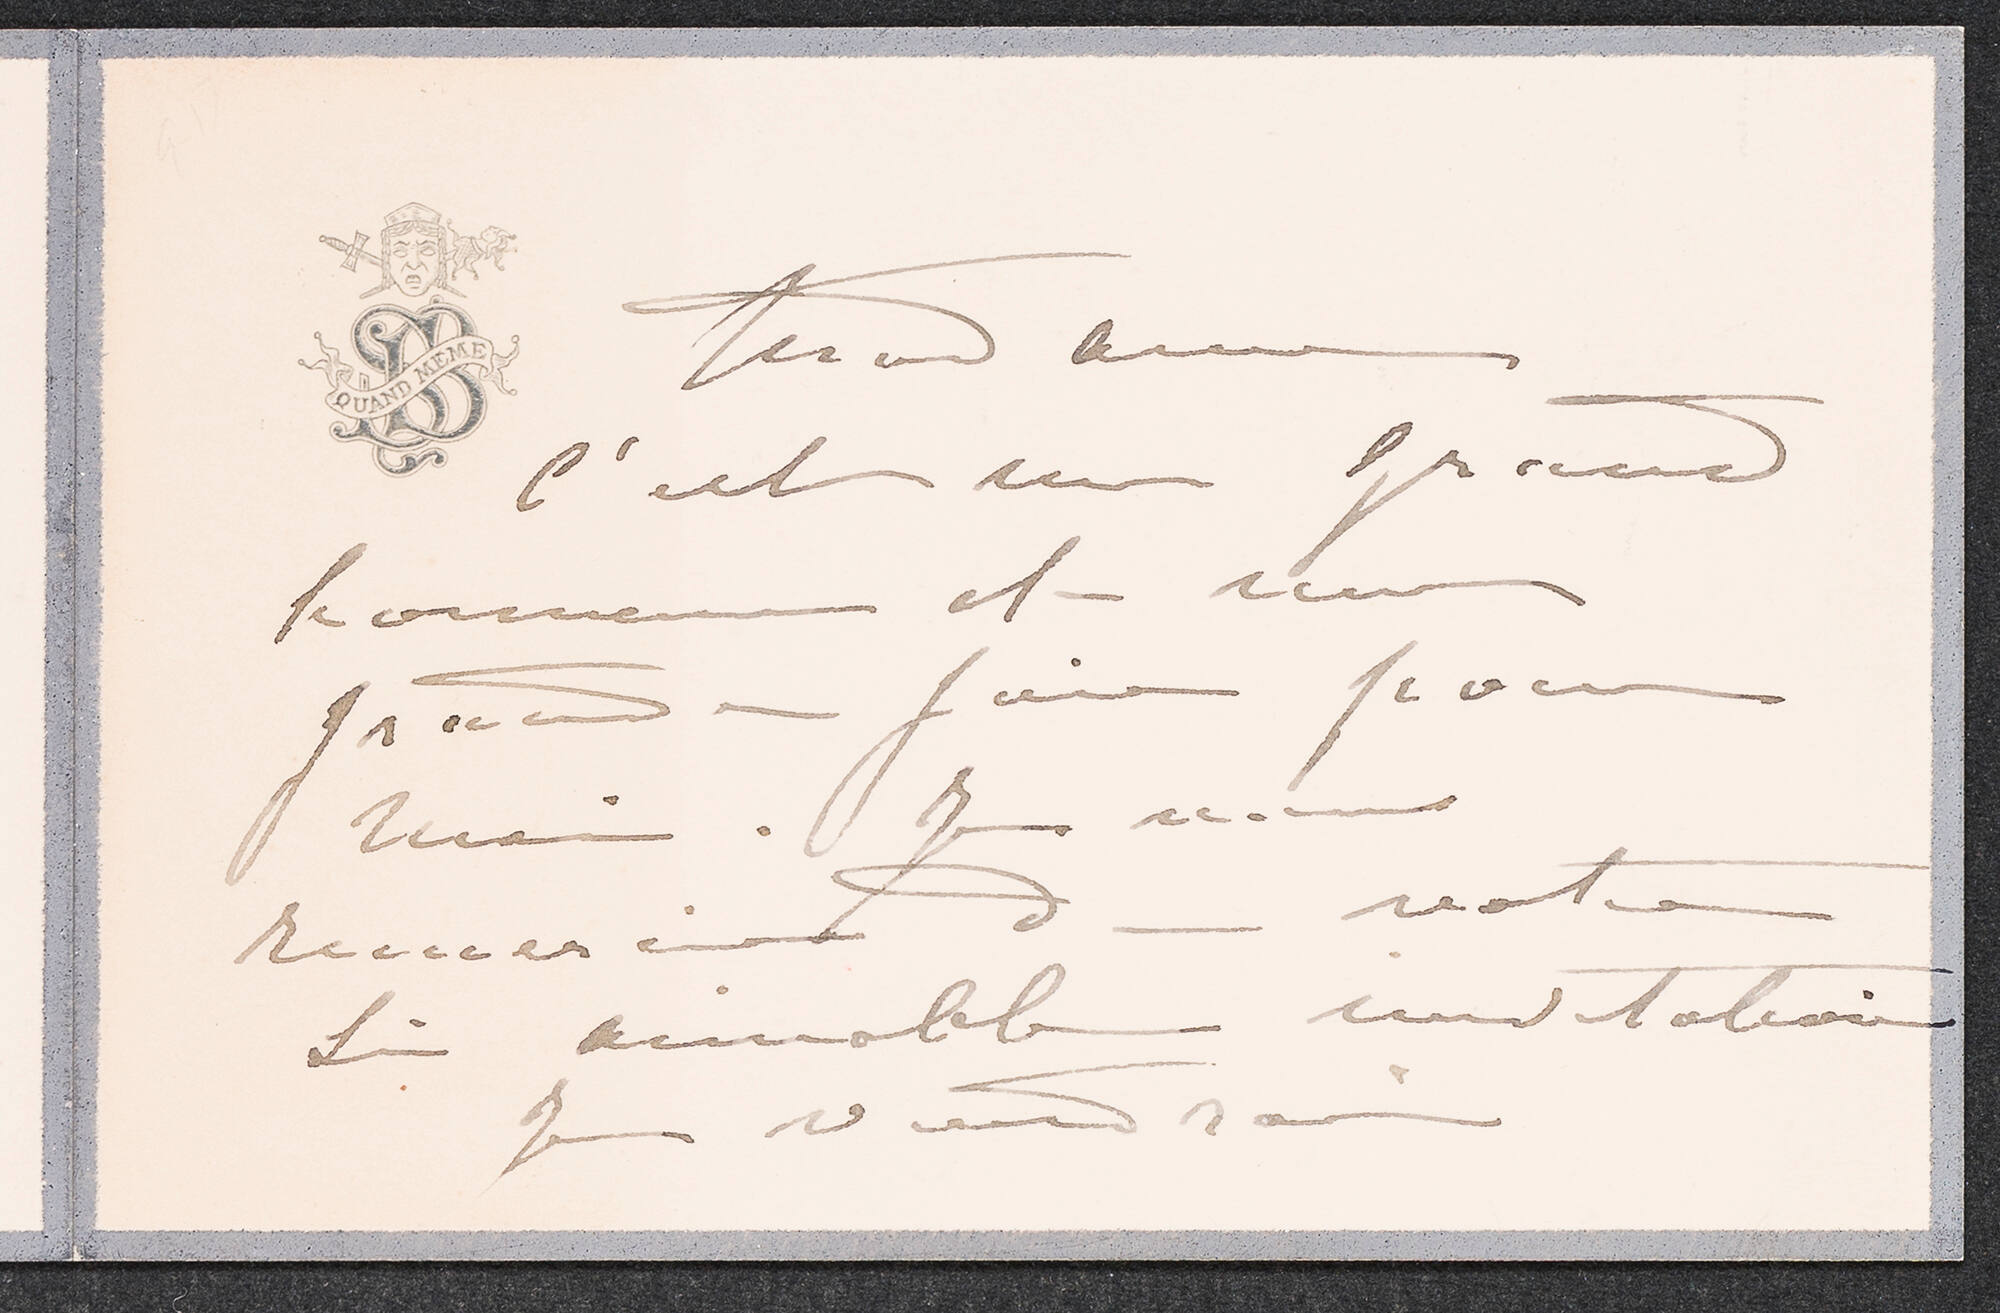 SB
QUAND MÊME
Madame
C'est un grand
honneur et une
grande joie pour
moi. Je vous
remercie de votre
si aimable invitation
Je viendrai